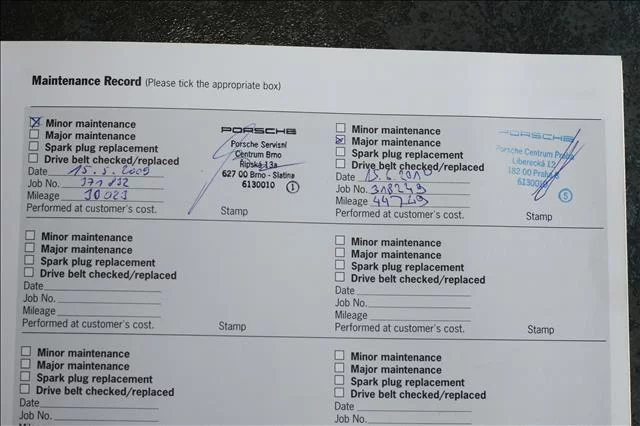 Maintenance Record (Please tick the appropriate box)
Minor maintenance
Major maintenance
Spark plug replacement
Drive belt checked/replaced
Date 15. 5. 2009
Job No.
Mileage 30023
Performed at customer's cost.
PORSCHE
Porsche Servisní
Centrum Brno
Řípská 13a
627 00 Brno - Slatina
6130010 1
Stamp
Minor maintenance
Major maintenance
Spark plug replacement
Drive belt checked/replaced
Date
Job No. 318249
Mileage 44749
Performed at customer's cost.
PORSCHE
Porsche Centrum Praha
Liberecká 12
182 00 Praha 8
6130010
5
Stamp
Minor maintenance
Major maintenance
Spark plug replacement
Drive belt checked/replaced
Date
Job No.
Mileage
Performed at customer's cost.
Stamp
Minor maintenance
Major maintenance
Spark plug replacement
Drive belt checked/replaced
Date
Job No.
Mileage
Performed at customer's cost.
Stamp
Minor maintenance
Major maintenance
Spark plug replacement
Drive belt checked/replaced
Date
Job No.
Minor maintenance
Major maintenance
Spark plug replacement
Drive belt checked/replaced
Date
Job No.